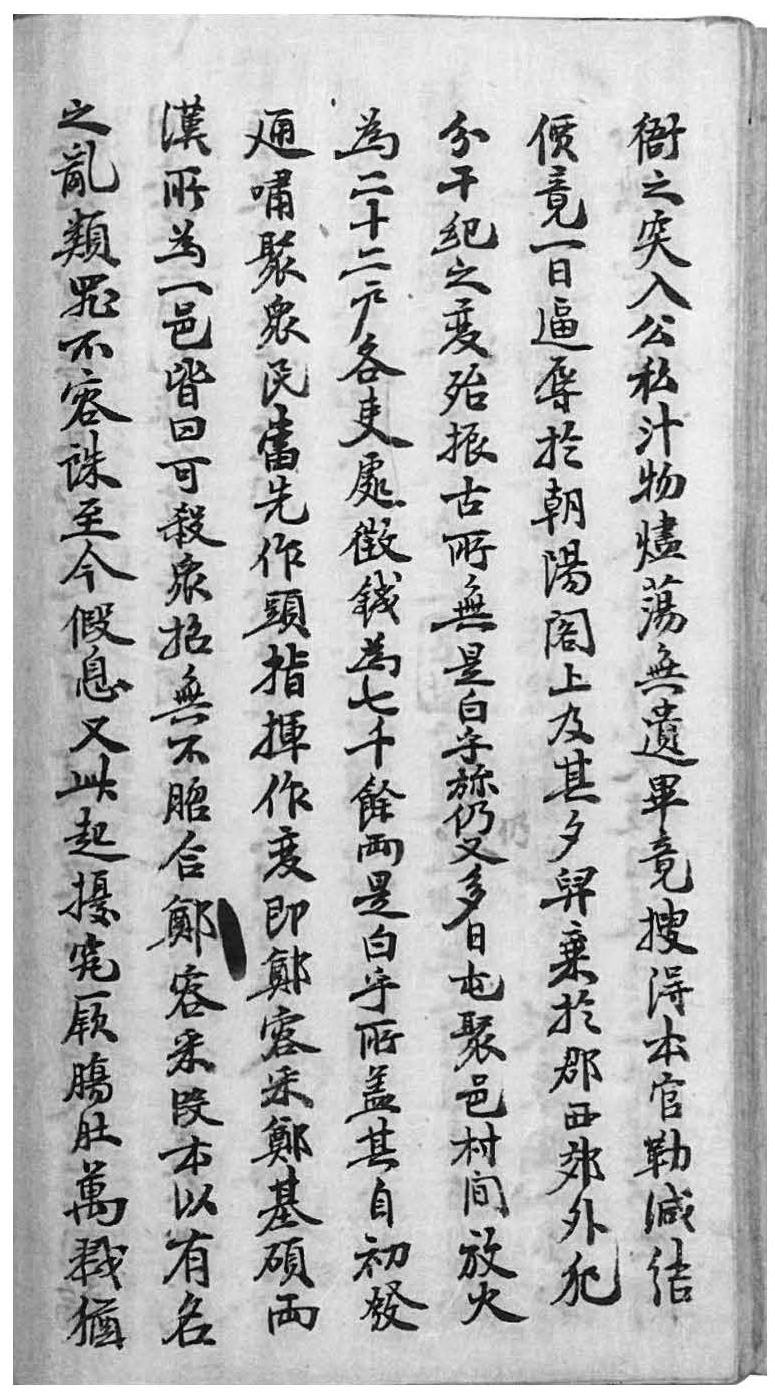 衙之突入公私汁物燼蕩無遺畢竟搜得本官勒减結
價竟一日逼辱於朝陽閣上及其夕舁棄於郡西郊外犯
分干紀之变殆振古所無是白乎旀仍又多日屯聚邑村間放火
為二十二戶各吏處徵錢為七千餘兩是白乎所盖其自初發
通嘯聚衆民當先作頭指揮作变即鄭容采鄭基碩兩
漢所為一邑皆曰可殺衆招無不脗合鄭容采段本以有名
之亂類罪不容誅至今假息又此起擾究厥膓肚萬戮猶